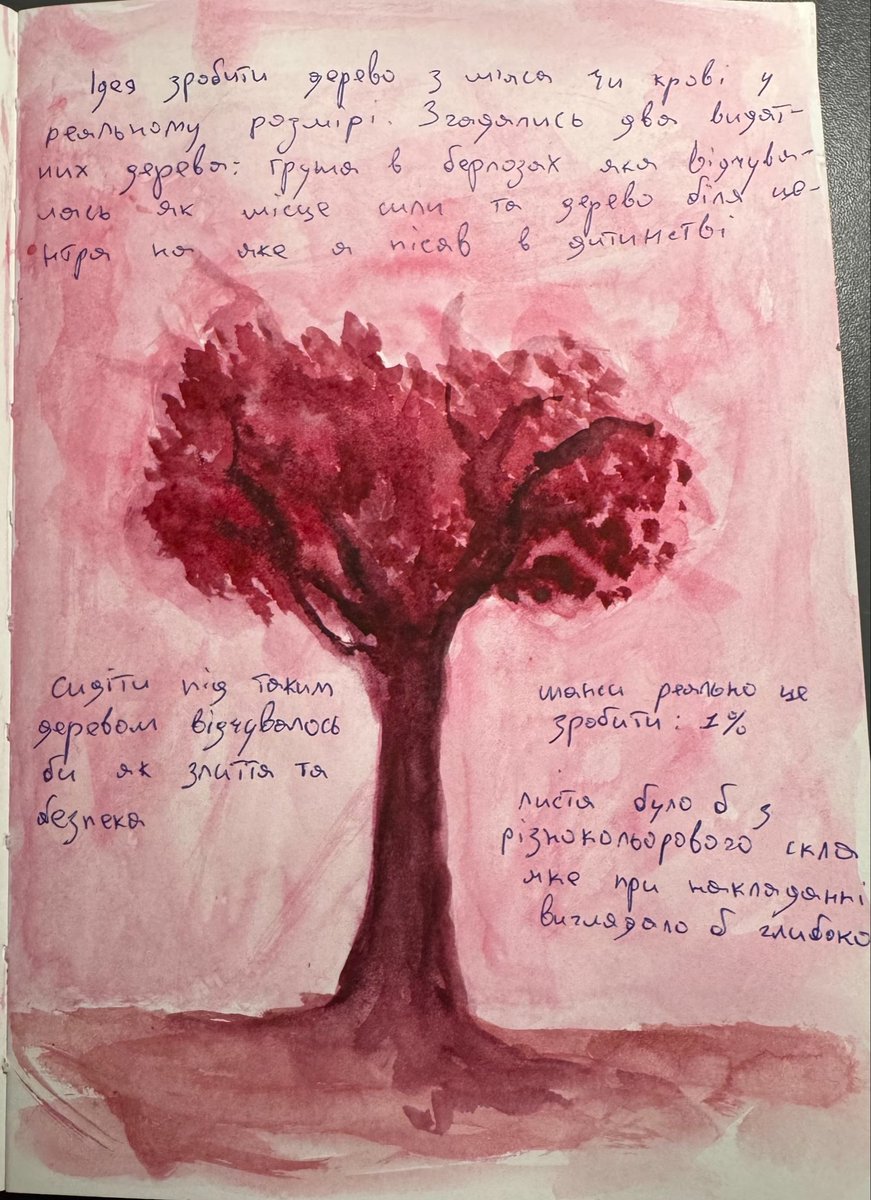 Ідея зробити дерево з мяса чи крові у
реальному розмірі. Згадались два видат-
них дерева: груша в берлозах яка відчува-
лась як місце сили та дерево біля це-
нтра на яке я пісяв в дитинстві
Сидіти під таким
деревом відчувалось
би як злиття та
безпека
шанси реально це
зробити: 1%
листя було б з
різнокольорового скла
яке при накладанні
виглядало б глибоко